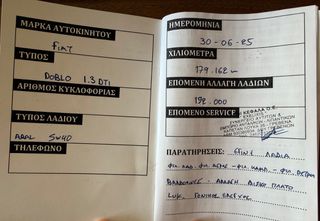 ΜΑΡΚΑ ΑΥΤΟΚΙΝΗΤΟΥ
FIAT
ΤΥΠΟΣ
DOBLO 1.3 DTI
ΑΡΙΘΜΟΣ ΚΥΚΛΟΦΟΡΙΑΣ
ΤΥΠΟΣ ΛΑΔΙΟΥ
ARAL 5W40
ΤΗΛΕΦΩΝΟ
ΗΜΕΡΟΜΗΝΙΑ
30-06-25
ΧΙΛΙΟΜΕΤΡΑ
179.162
ΕΠΟΜΕΝΗ ΑΛΛΑΓΗ ΛΑΔΙΩΝ
192.000
ΕΠΟΜΕΝΟ SERVICE
ΠΑΡΑΤΗΡΗΣΕΙΣ: ΛΑΔΙΑ
ΦΙΛ. ΛΑΔ. ΦΙΛ. ΑΕΡΟΣ - ΦΙΛ. ΚΑΜΠ. - ΦΙΛ.
ΒΑΛΒΟΛΙΝΕΣ - ΑΛΛΑΓΗ ΔΙΣΚΟ ΠΛΑΤΟ
LUK, ΓΕΝΙΚΟΣ ΕΛΕΓΧΟΣ